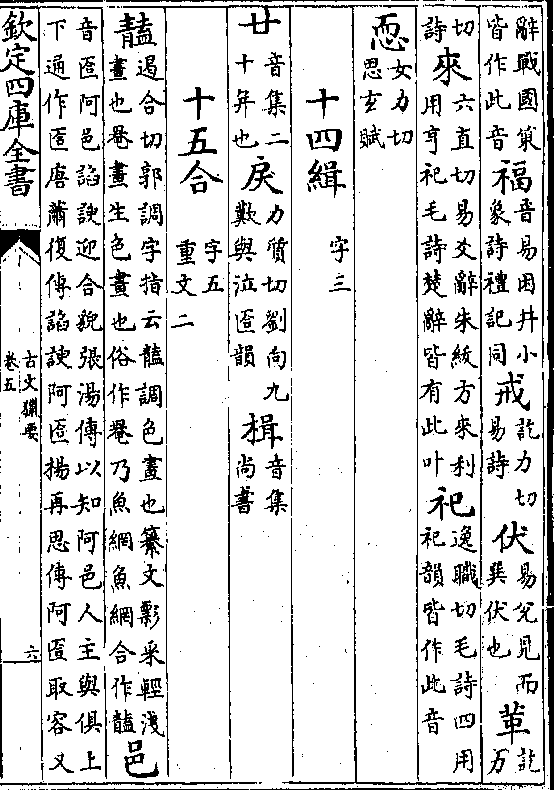 辭戰國策皆作此音福晉易困井小象詩禮記同戒訖力切易詩伏易兌見而巽伏也革訖力
切詩來六直切易爻辭朱紱方來利用亨祀毛詩楚辭皆有此叶祀逸職切毛詩四用祀韻皆作此音
恧女力切思玄賦
十四緝字三
廿音集二十年也戾力質切劉向九歎與泣匿韻楫音集尚書
十五合字五重文二
遏合切郭調字指云調色畫也纂文彩采輕淺畫也罨畫生色畫也俗作罨乃魚網魚網合作邑
音匼阿邑諂諛迎合貌張湯傳以知阿邑人主與俱上下通作匼唐蕭復傳諂諛阿匼揚再思傳阿匼取容又
欽定四庫全書
古文獵要
卷五
六